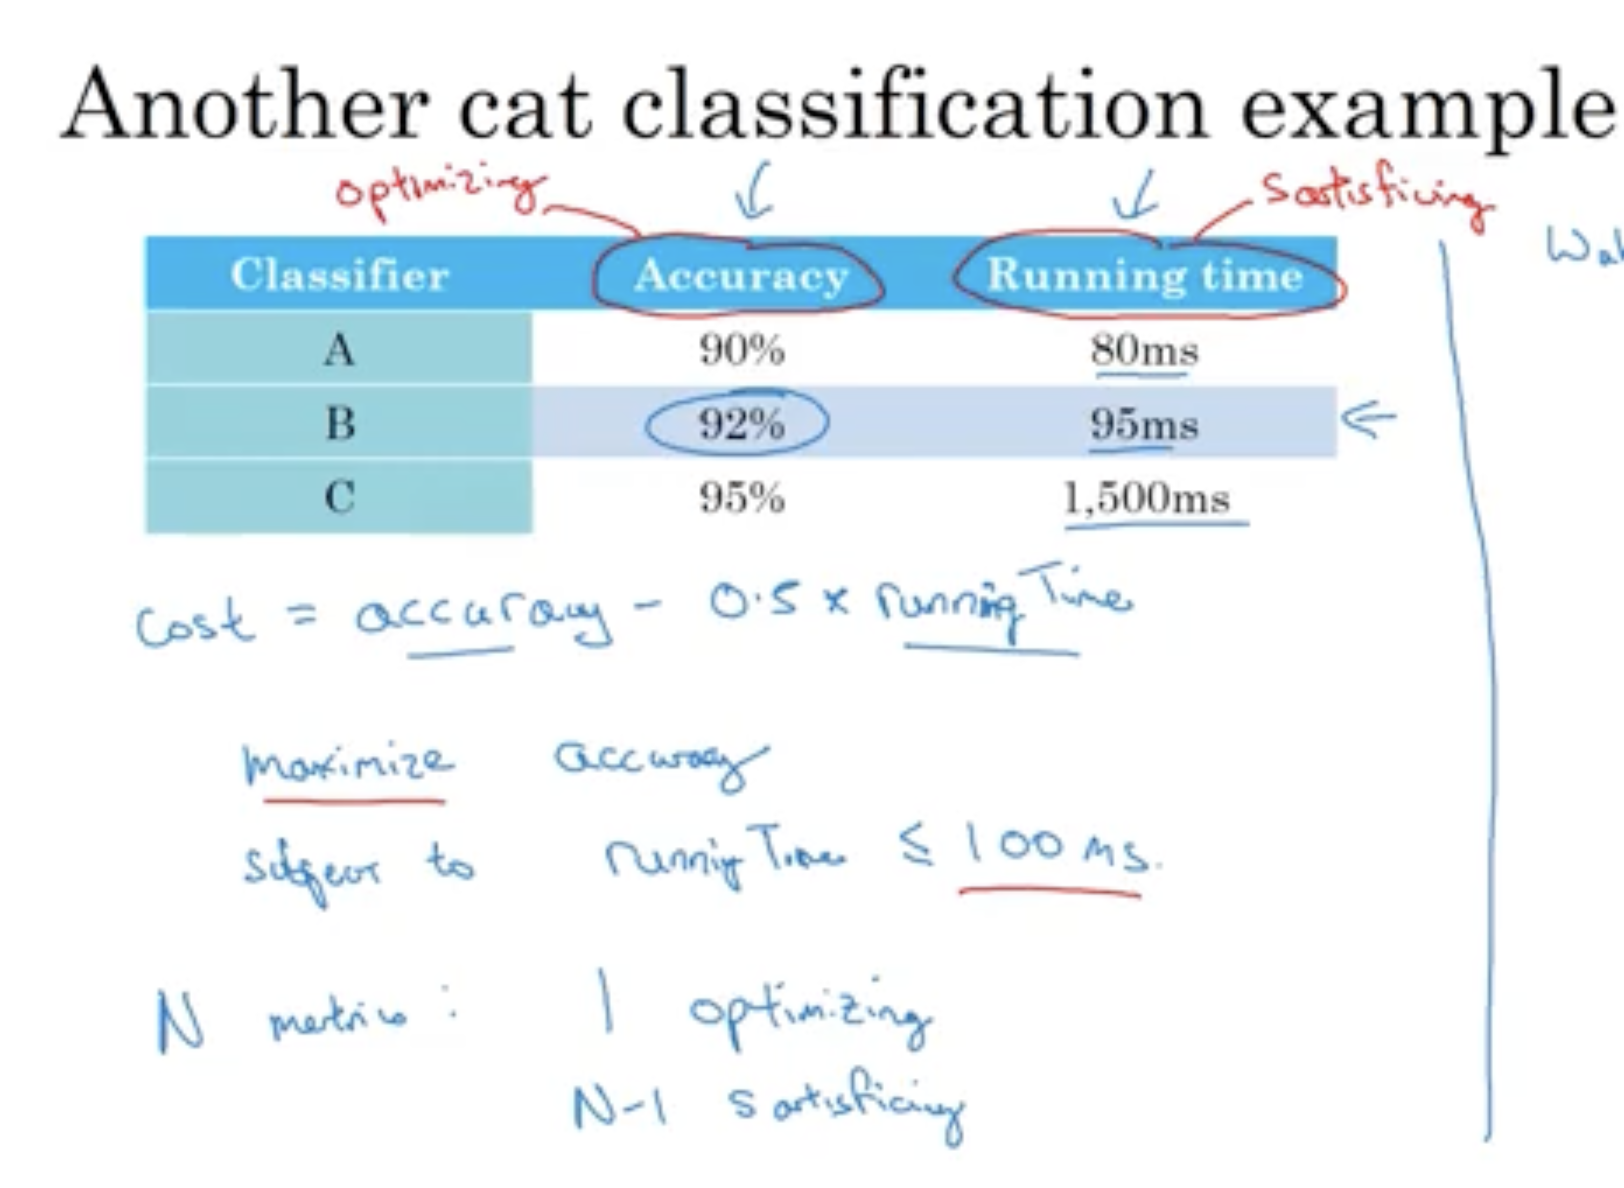 Another cat classification example
optimizing
Satisficing
Classifier Accuracy Running time
A 90% 80ms
B 92% 95ms
C 95% 1,500ms
Cost = accuracy - 0.5 x running Time
maximize accuracy
subject to running Time ≤ 100 ms.
N metrics: 1 optimizing
N-1 satisficing